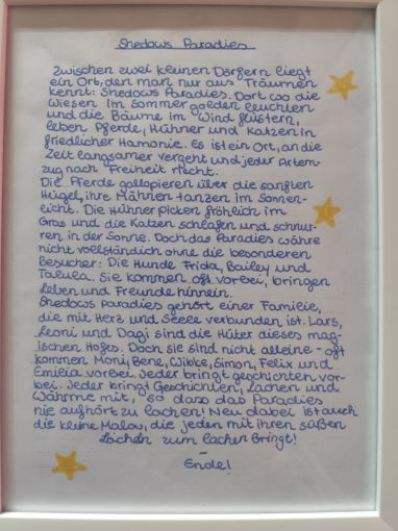 Shedows Paradies
Zwischen zwei kleinen Dörfern liegt
ein Ort, den man nur aus Träumen
kennt: Shedows Paradies. Dort wo die
Wiesen im Sommer golden leuchten
und die Bäume im Wind flüstern,
leben Pferde, Hühner und Katzen in
friedlicher Hamonie. Es ist ein Ort, an die
Zeit langsamer vergeht und jeder Artem-
zug nach Freiheit riecht.
Die Pferde gallopieren über die sanften
Hügel, ihre Mähnen tanzen im Sonnen-
licht. Die Hühner picken fröhlich im
Gras und die Katzen schlafen und schnur-
ren in der Sonne. Doch das Paradies währe
nicht vollständich ohne die besonderen
Besucher: Die Hunde Frida, Bailey und
Talula. Sie kommen oft vorbei, bringen
Leben und Freunde hinnein.
Shedows Paradies gehört einer Familie,
die mit Herz und Seele verbunden ist. Lars,
Leoni und Dagi sind die Hüter dieses mag-
ischen Hofes. Doch sie sind nicht alleine - oft
kommen Moni, Bene, Wibke, Simon, Felix und
Emilia vorbei. Jeder bringt geschichten vor-
bei. Jeder bringt Geschichten, Lachen und
Währme mit, so dass das Paradies
nie aufhört zu lachen! Neu dabei ist auch
die kleine Malou, die jeden mit ihren süßen
Löicheln zum lachen Bringt!
–
Ende!